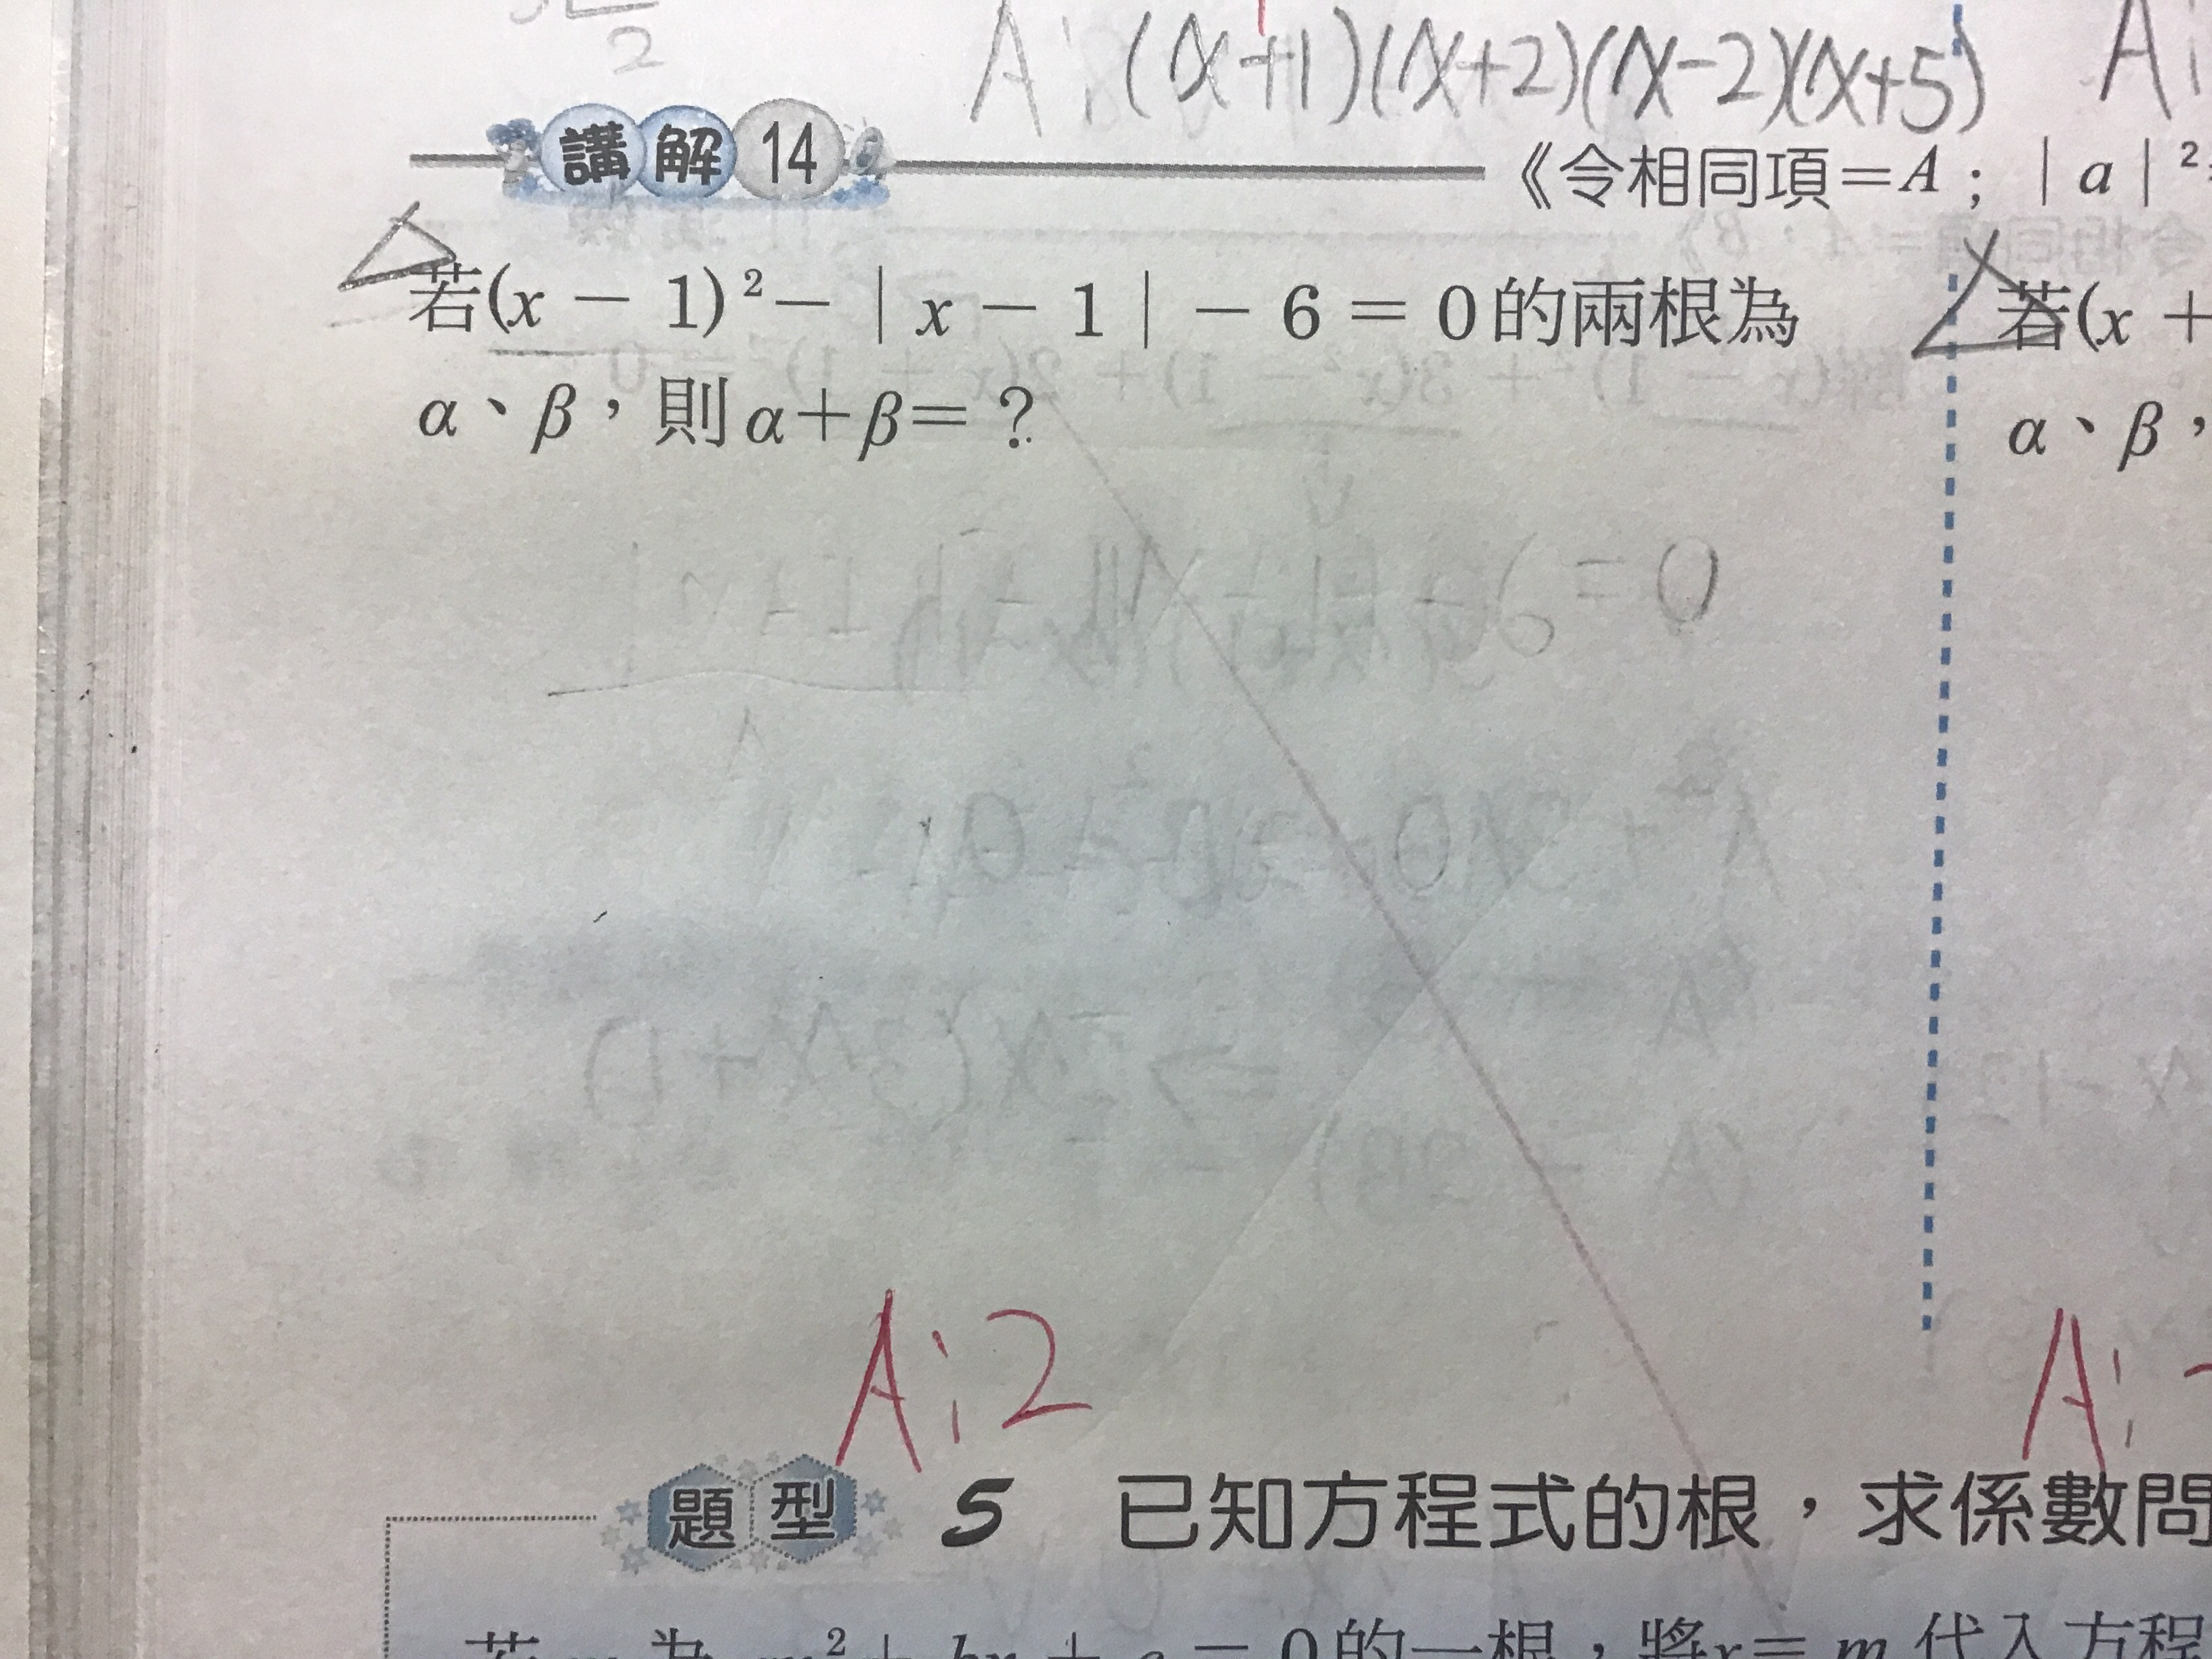 2
A:(x+1)(x+2)(x-2)(x+5)
A:
講解 14
《令相同項=A;|a|²
若(x-1)²-|x-1|-6=0的兩根為
α、β,則α+β=?
若(x+
α、β,
A:2
A:-
題型 5 已知方程式的根,求係數問
的一根,將x=m代入方程